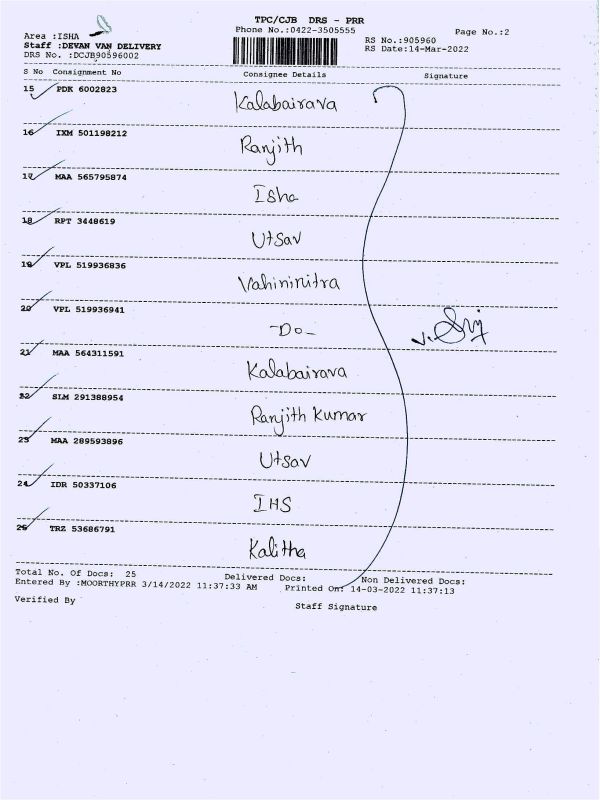 TPC/CJB DRS - PRR
Phone No.:0422-3505555
Page No.:2
Area :ISHA
Staff :DEVAN VAN DELIVERY
DRS No. :DCJB90596002
RS No.:905960
RS Date:14-Mar-2022
S No Consignment No Consignee Details Signature
15 PDK 6002823 Kalabairava
16 IXM 501198212 Ranjith
17 MAA 565795874 Isha
18 RPT 3448619 Utsav
19 VPL 519936836 Vahininitra
20 VPL 519936941 -Do-
21 MAA 564311591 Kalabairava
22 SLM 291388954 Ranjith Kumar
23 MAA 289593896 Utsav
24 IDR 50337106 IHS
25 TRZ 53686791 Kalitha
Total No. Of Docs: 25 Delivered Docs: Non Delivered Docs:
Entered By :MOORTHYPRR 3/14/2022 11:37:33 AM Printed On: 14-03-2022 11:37:13
Verified By Staff Signature